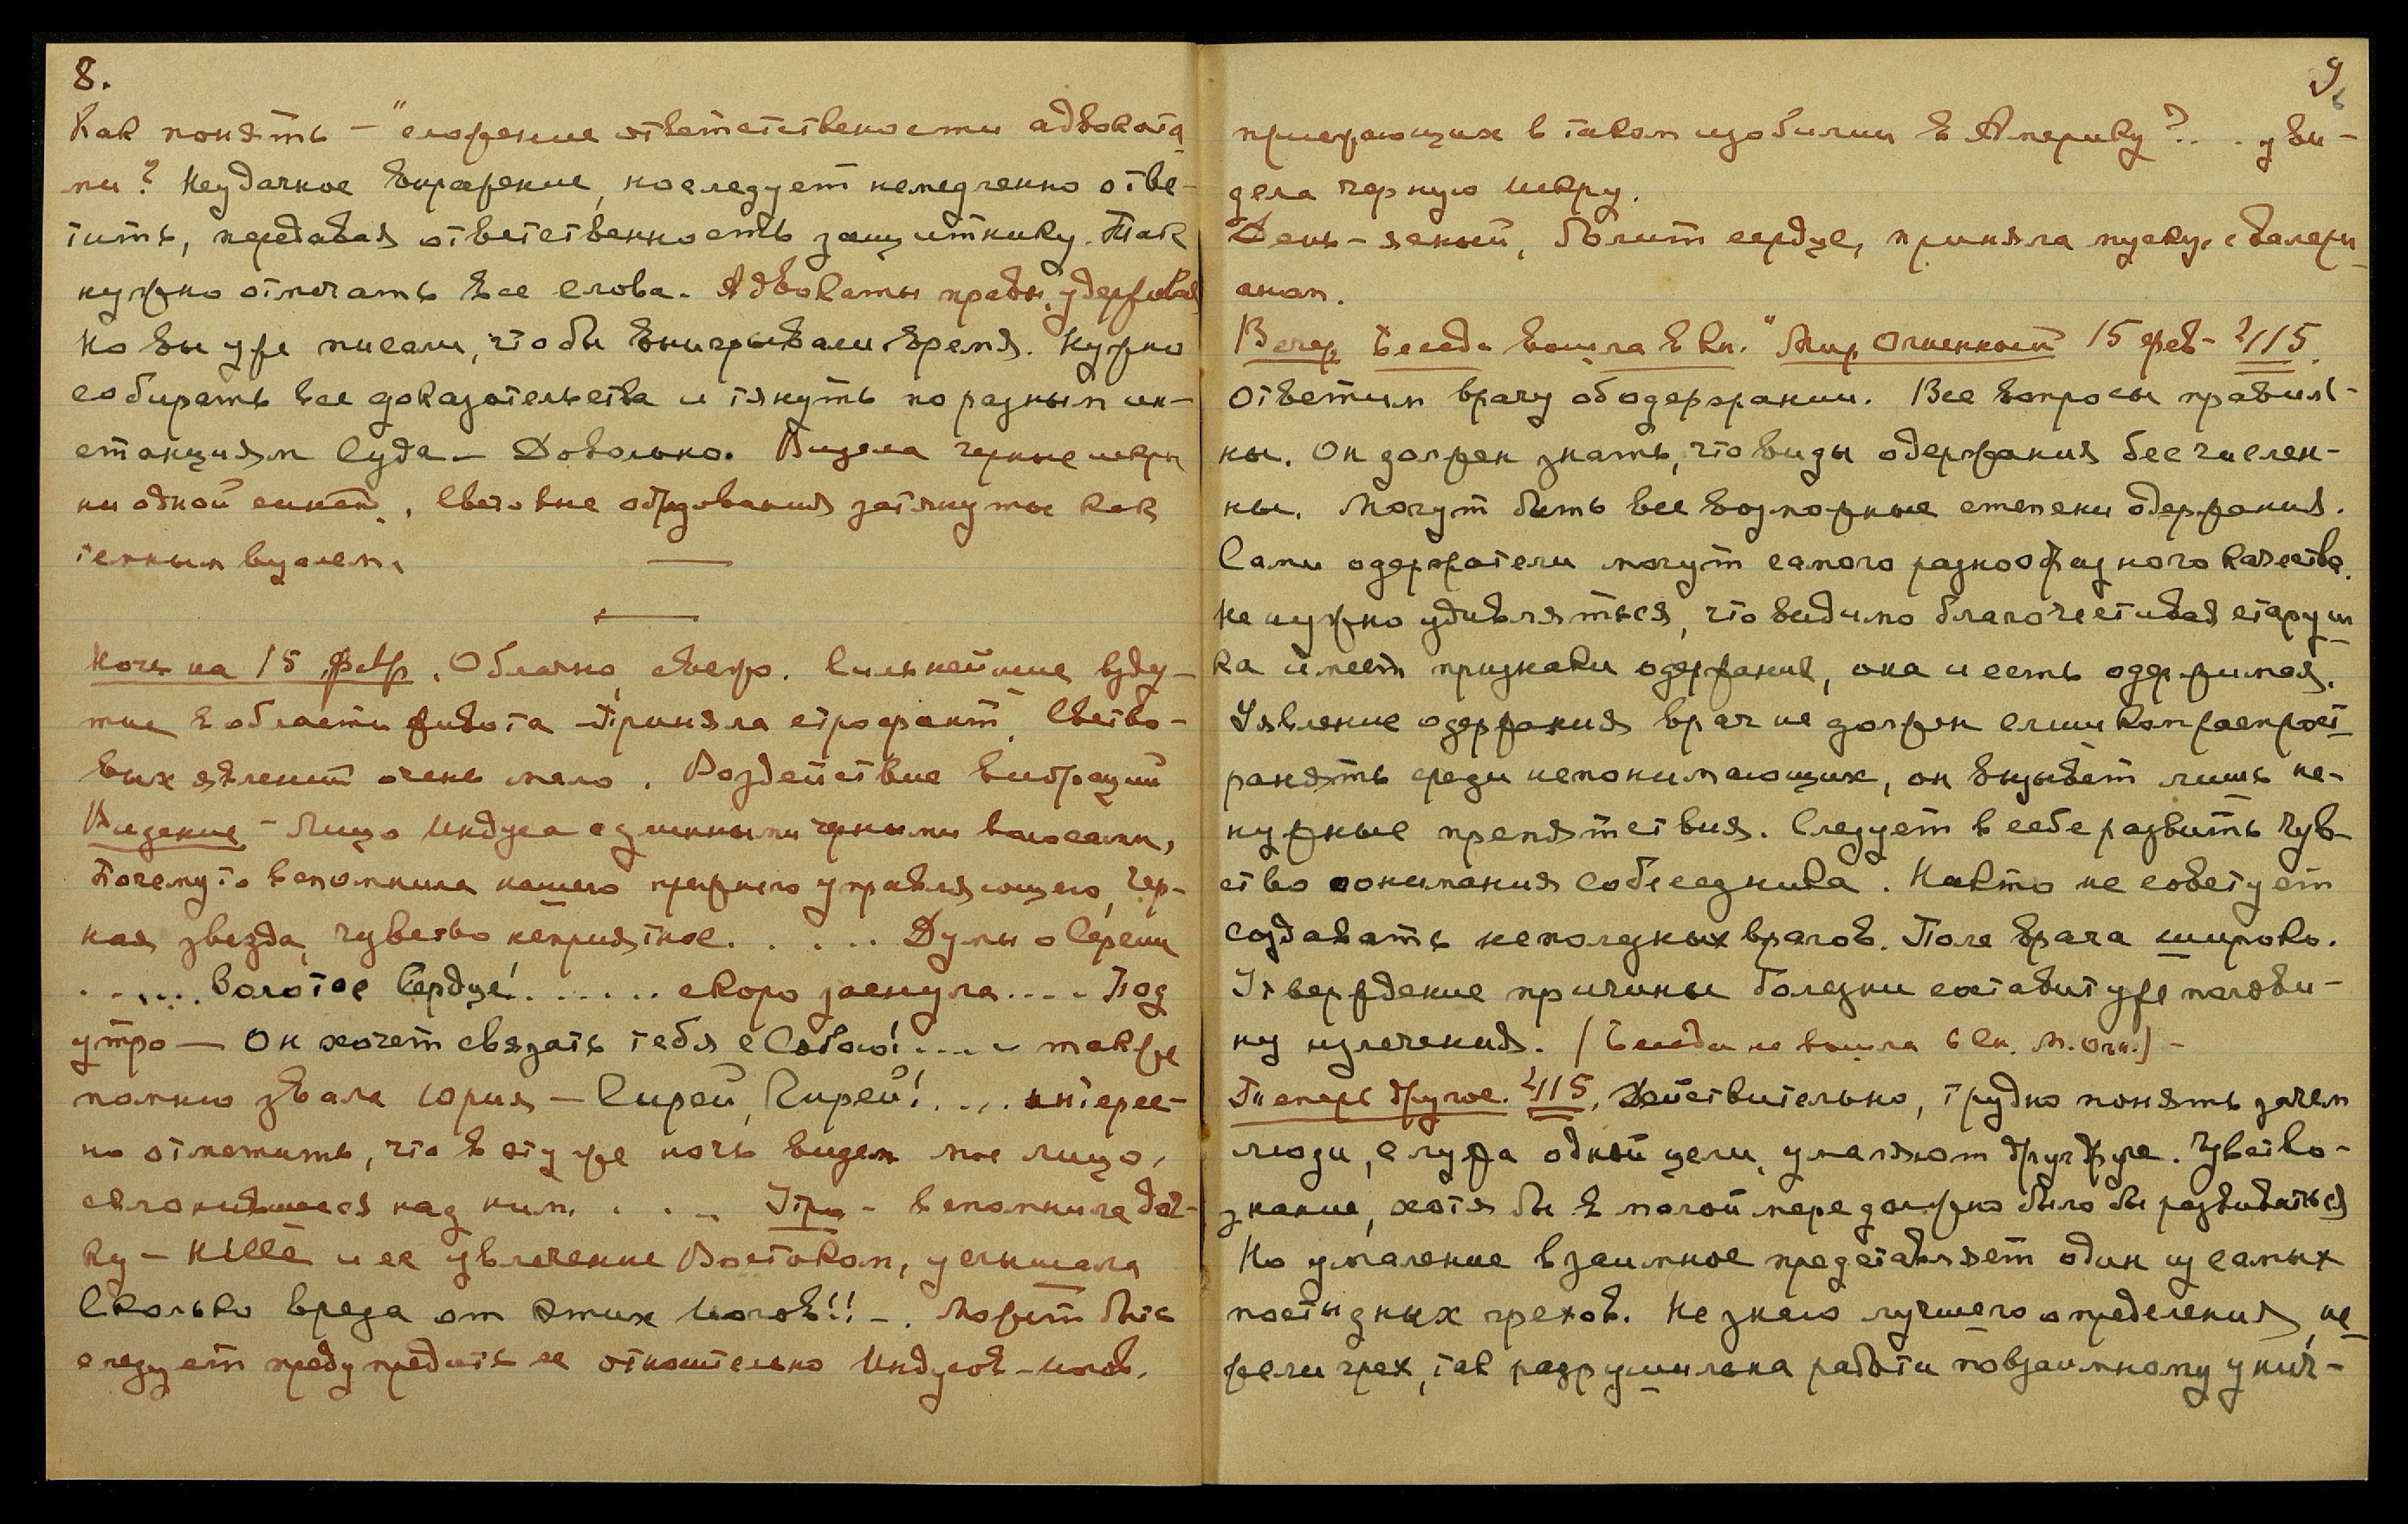 8.
Как понять — "сложение ответственности адвоката-
ми? Неудачное выражение, но следует немедленно отве-
тить, передавая ответственность защитнику. Так
нужно отмечать все слова. Адвокаты правы, удерживая
Но вы уже писали, чтобы выигрывали время. Нужно
собирать все доказательства и тянуть по разным ин-
станциям Суда — Довольно. Видела черные искры
ни одной синей. Световые образования затянуты как
темным вуалем.
Ночь на 15 февр. Облачно, свежо. Сильнейшие взду-
тие в области живота — Приняла строфант. Свето-
вых явлений очень мало. Воздействие вибраций
Видение — Лицо Индуса с длинными черными волосами,
Почему-то вспомнила нашего прежнего управляющего, Чер-
ная звезда, чувство неприятное. . . . . Думы о Сергии
. . . . . . Золотое Сердце! . . . . . . скоро заснула . . . . Под
утро — Он хочет связать тебя с Собою! . . . . также
помню звала Юрия — Кирей, Кирей! . . . . интерес-
но отметить, что в эту же ночь видел мое лицо,
склонившееся над ним. . . . Утро — вспомнила доч-
ку — Hille и ее увлечение Востоком, услышала
Сколько вреда от этих Иогов!! —. Может быть
следует предупредить ее относительно Индусов-иогов,
9
приезжающих в таком изобилии в Америку? . . уви-
дела черную искру.
День — ясный, болит сердце, приняла мускус с валери-
аном.
Вечер. Беседа вошла в кн. "Мир Огненный 15 фев — 2/15.
Ответим врачу об одержании. Все вопросы правиль-
ны. Он должен знать, что виды одержания бесчислен-
ны. Могут быть все возможные степени одержания.
Сами одержатели могут самого разнообразного качества.
Не нужно удивляться, что видимо благочестивая старуш-
ка имеет признаки одержания, она и есть одержимая.
Явление одержания врач не должен слишком распрост-
ранять среди непонимающих, он вызывает лишь не-
нужные препятствия. Следует в себе развить чув-
ство понимания собеседника. Никто не советует
создавать неполезных врагов. Поле врача широко.
Утверждение причины болезни составит уже полови-
ну излечения. (Беседа не вошла в кн. М. Огн.) —
Теперь другое. 2/15. Действительно, трудно понять зачем
люди, служа одной цели, умаляют друг друга. Чувство-
знание, хотя бы в малой мере должно было бы развиваться
Но умаление взаимное представляет один из самых
постыдных грехов. Не знаю лучшего определения, не-
жели грех, так разрушительна работа по взаимному унич-